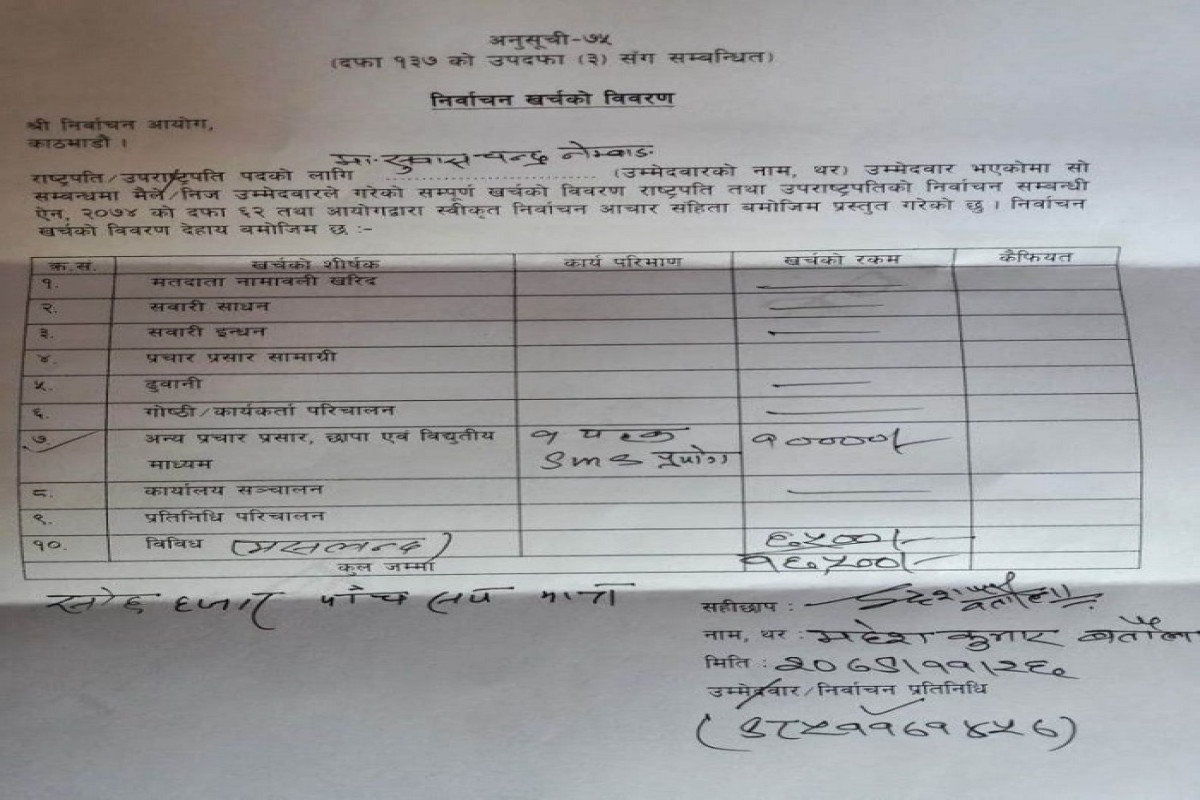 अनुसूची-७५
(दफा १३७ को उपदफा (३) संग सम्बन्धित)
निर्वाचन खर्चको विवरण
श्री निर्वाचन आयोग,
काठमाडौं ।
मा. सुवास चन्द्र नेम्वाङ
राष्ट्रपति/उपराष्ट्रपति पदको लागि .............................. (उम्मेदवारको नाम, थर) उम्मेदवार भएकोमा सो
सम्बन्धमा मैले/निज उम्मेदवारले गरेको सम्पूर्ण खर्चको विवरण राष्ट्रपति तथा उपराष्ट्रपतिको निर्वाचन सम्बन्धी
ऐन, २०७४ को दफा ६२ तथा आयोगद्वारा स्वीकृत निर्वाचन आचार संहिता बमोजिम प्रस्तुत गरेको छु । निर्वाचन
खर्चको विवरण देहाय बमोजिम छ :-
क्र.सं. खर्चको शीर्षक कार्य परिमाण खर्चको रकम कैफियत
१. मतदाता नामावली खरिद
२. सवारी साधन
३. सवारी इन्धन
४. प्रचार प्रसार सामाग्री
५. ढुवानी
६. गोष्ठी/कार्यकर्ता परिचालन
७ अन्य प्रचार प्रसार, छापा एवं विद्युतीय १ पटक १००००/-
माध्यम SMS प्रयोग
८. कार्यालय सञ्चालन
९. प्रतिनिधि परिचालन
१०. विविध (मसलन्द) ६,५००/-
कुल जम्मा १६,५००/-
सोह्र हजार पाँच सय मात्र
सहीछाप :
नाम, थर : महेश कुमार बर्तौला
मिति : २०७९।११।२६
उम्मेदवार/निर्वाचन प्रतिनिधि
(९८५११७१४५७)